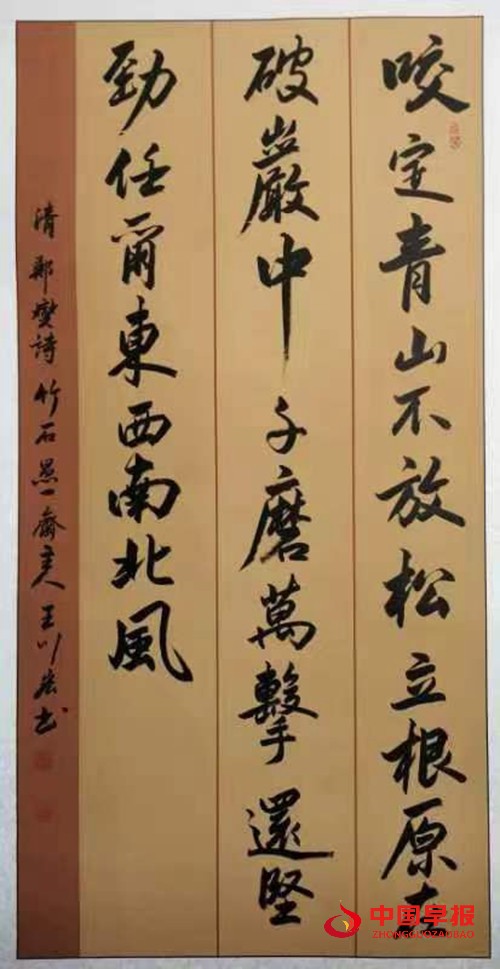 咬定青山不放松立根原在
破巖中千磨萬擊還堅
勁任爾東西南北風
清鄭燮詩竹石一齋主人王川书
中国早报
ZHONGGUOZAOBAO